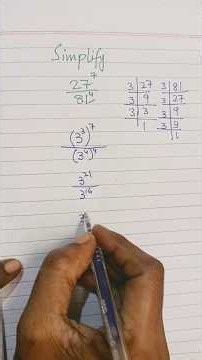 Simplify
27⁷
81⁴
3 27 3 81
3 9 3 27
3 3 3 9
1 3 3
1
(3³)⁷
(3⁴)⁴
3²¹
3¹⁶
3